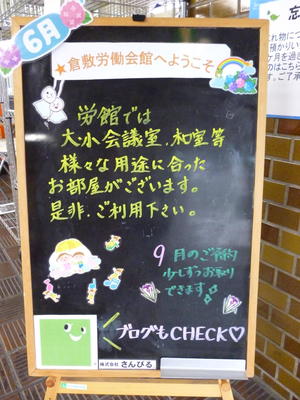 6月
★倉敷労働会館へようこそ
労館では
大・小会議室、和室等
様々な用途に合った
お部屋がございます。
是非、ご利用下さい。
9月のご予約
少しずつお取り
できます。
ブログもCHECK♡
株式会社 さんびる
忘
れ物につ
預かりい
ヶ月を過
のはこち
ご了承